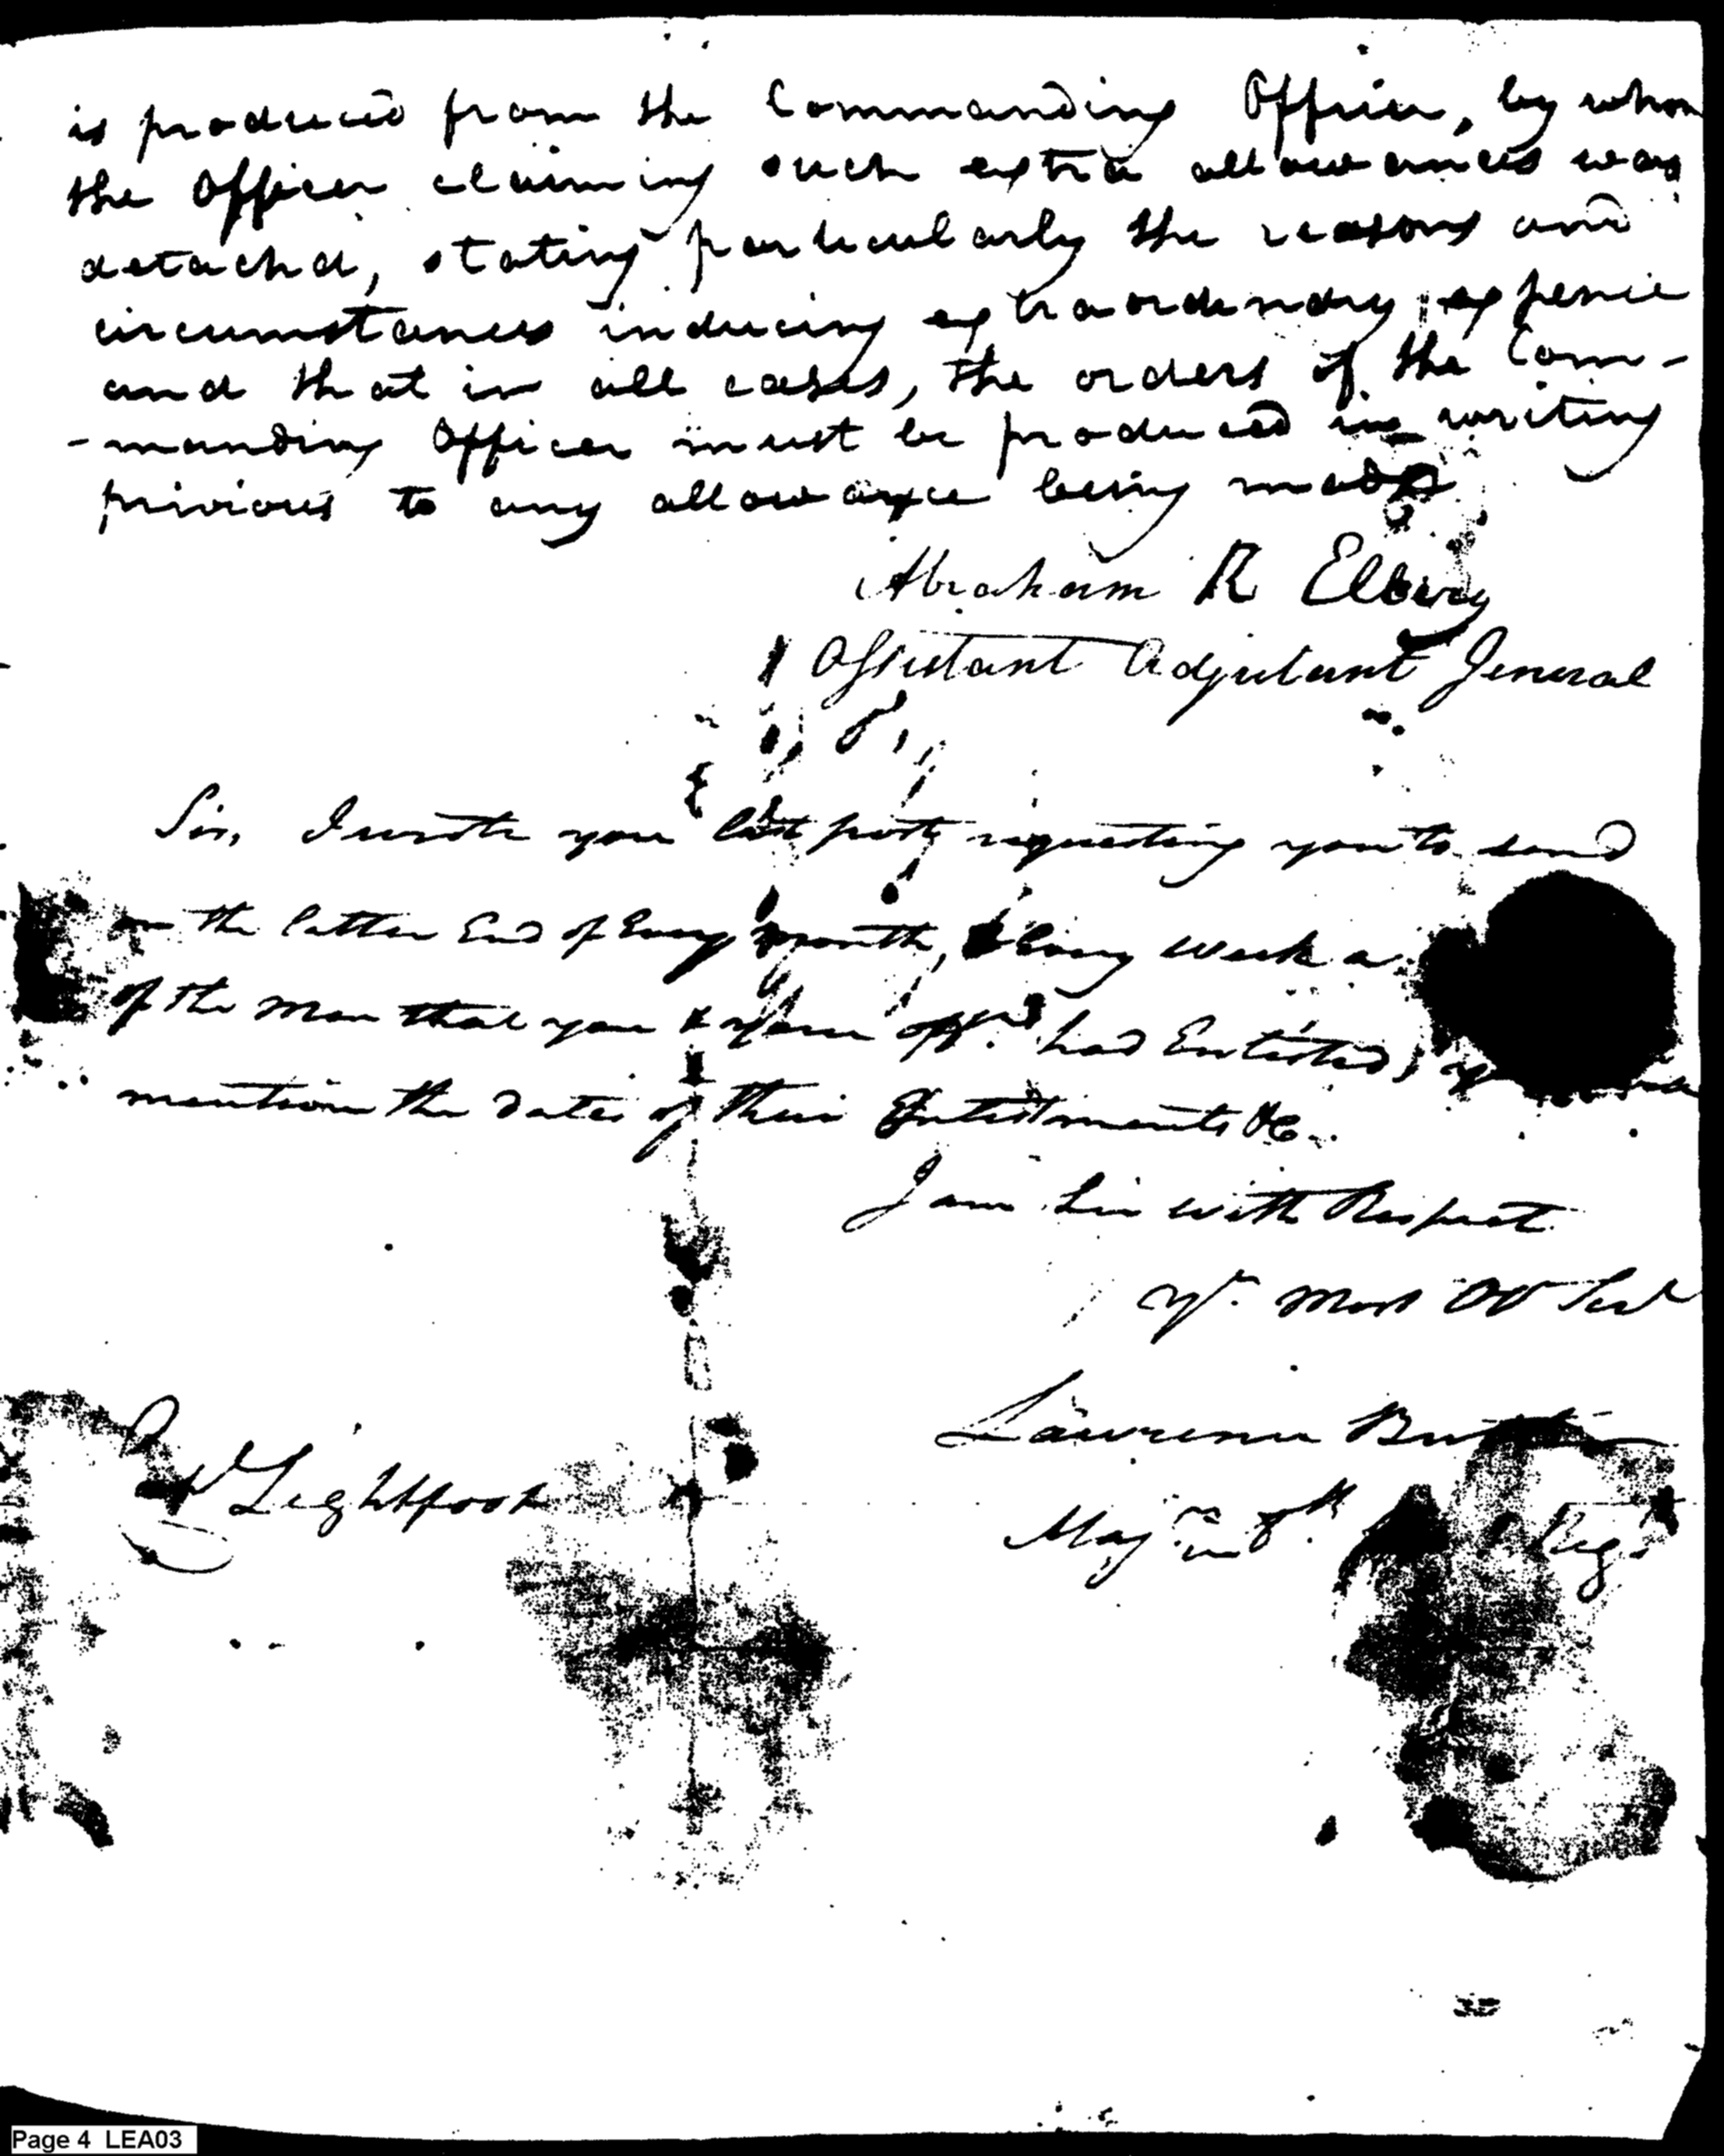 is produced from the Commanding Officer, by whom
the Officer claiming such extra allowances was
detachd, stating particularly the reasons and
circumstances inducing extraordinary expence
and that in all cases, the orders of the Com-
-manding Officer must be produced in writing
privious to any allowance being made
Abraham R Ellery
Assistant Adjutant General
Sir, I wrote you last post requesting you to send
on the latter End of Every month, Every week a
of the Men that you & your offrs. had Enlisted,
mention the dates of their Enlistments &c.
I am Sir with Respect
Yr. Most Obt Servt
Lawrence Butler
Lightfoot
Majr. in 8th Regt
Page 4 LEA03